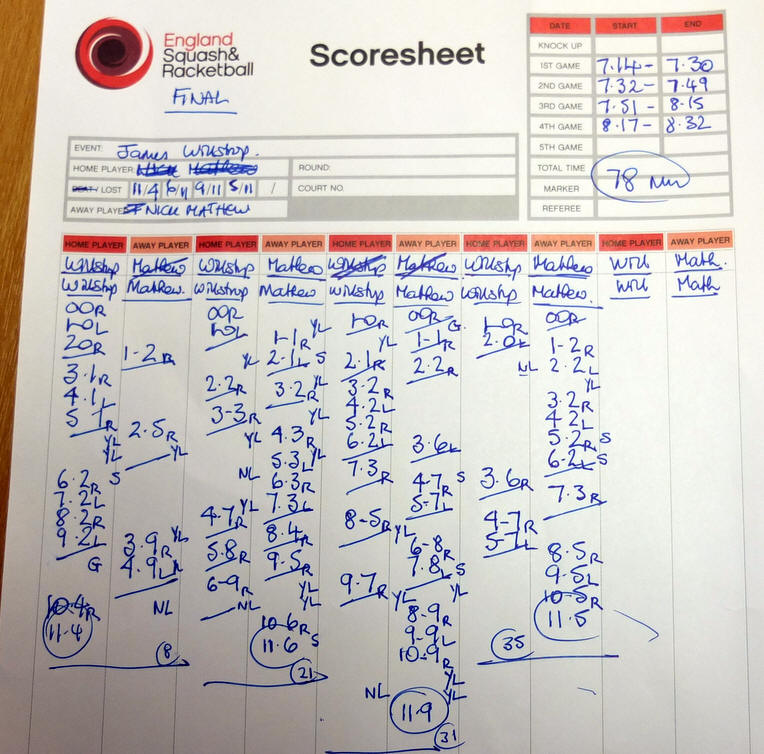 England
Squash &
Racketball
Scoresheet
FINAL
DATE START END
KNOCK UP
1ST GAME 7.14 - 7.30
2ND GAME 7.32 - 7.49
3RD GAME 7.51 - 8.15
4TH GAME 8.17 - 8.32
5TH GAME
TOTAL TIME 78 min
MARKER
REFEREE
EVENT: James Willstrop.
HOME PLAYER Nick Matthew ROUND:
BEAT / LOST 11/4 6/11 9/11 5/11 / COURT NO.
AWAY PLAYER NICK MATHEW
HOME PLAYER AWAY PLAYER HOME PLAYER AWAY PLAYER HOME PLAYER AWAY PLAYER HOME PLAYER AWAY PLAYER HOME PLAYER AWAY PLAYER
Willstrop Mathew Willstrop Mathew Willstrop Mathew Willstrop Mathew Will Math.
Willstrop Mathew. Willstrop Mathew Willstrop Mathew Willstrop Mathew. Will Math
00R 00R 1-0R 00R G 1-0R 00R
1-0L 1-0L YL 1-1R YL 1-1R 2-0L 1-2R
20R 1-2R YL 2.1L S 2.1R 2.2R NL 2.2L
3.1R 2.2R 3.2R YL 3-2R YL
4.1L 3-3R YL 4.2L 3.2R
5-1R 2.5R YL 4.3R 5.2R 4.2L
YL YL 5.3L YL 6.2L 3.6L 5.2R S
YL YL 6-2L S
6.2R S NL 6.3R 7.3R 4-7R S 3.6R 7.3R
7.2L YL 7.3L 5-7L
8.2R 4-7R 8.4R 8-5R 4-7R
9.2L 3.9R YL 5.8R 9.5R YL 6-8R 5-7L 8.5R
G 4.9L 6-9R YL 7.8L S 9.5L
NL YL 9.7R YL YL 10-5R
10-4R NL 10-6R 8-9R 11.5
11-4 11.6 S 9-9L 35
8 21 10-9R
YL
NL YL
11-9
31